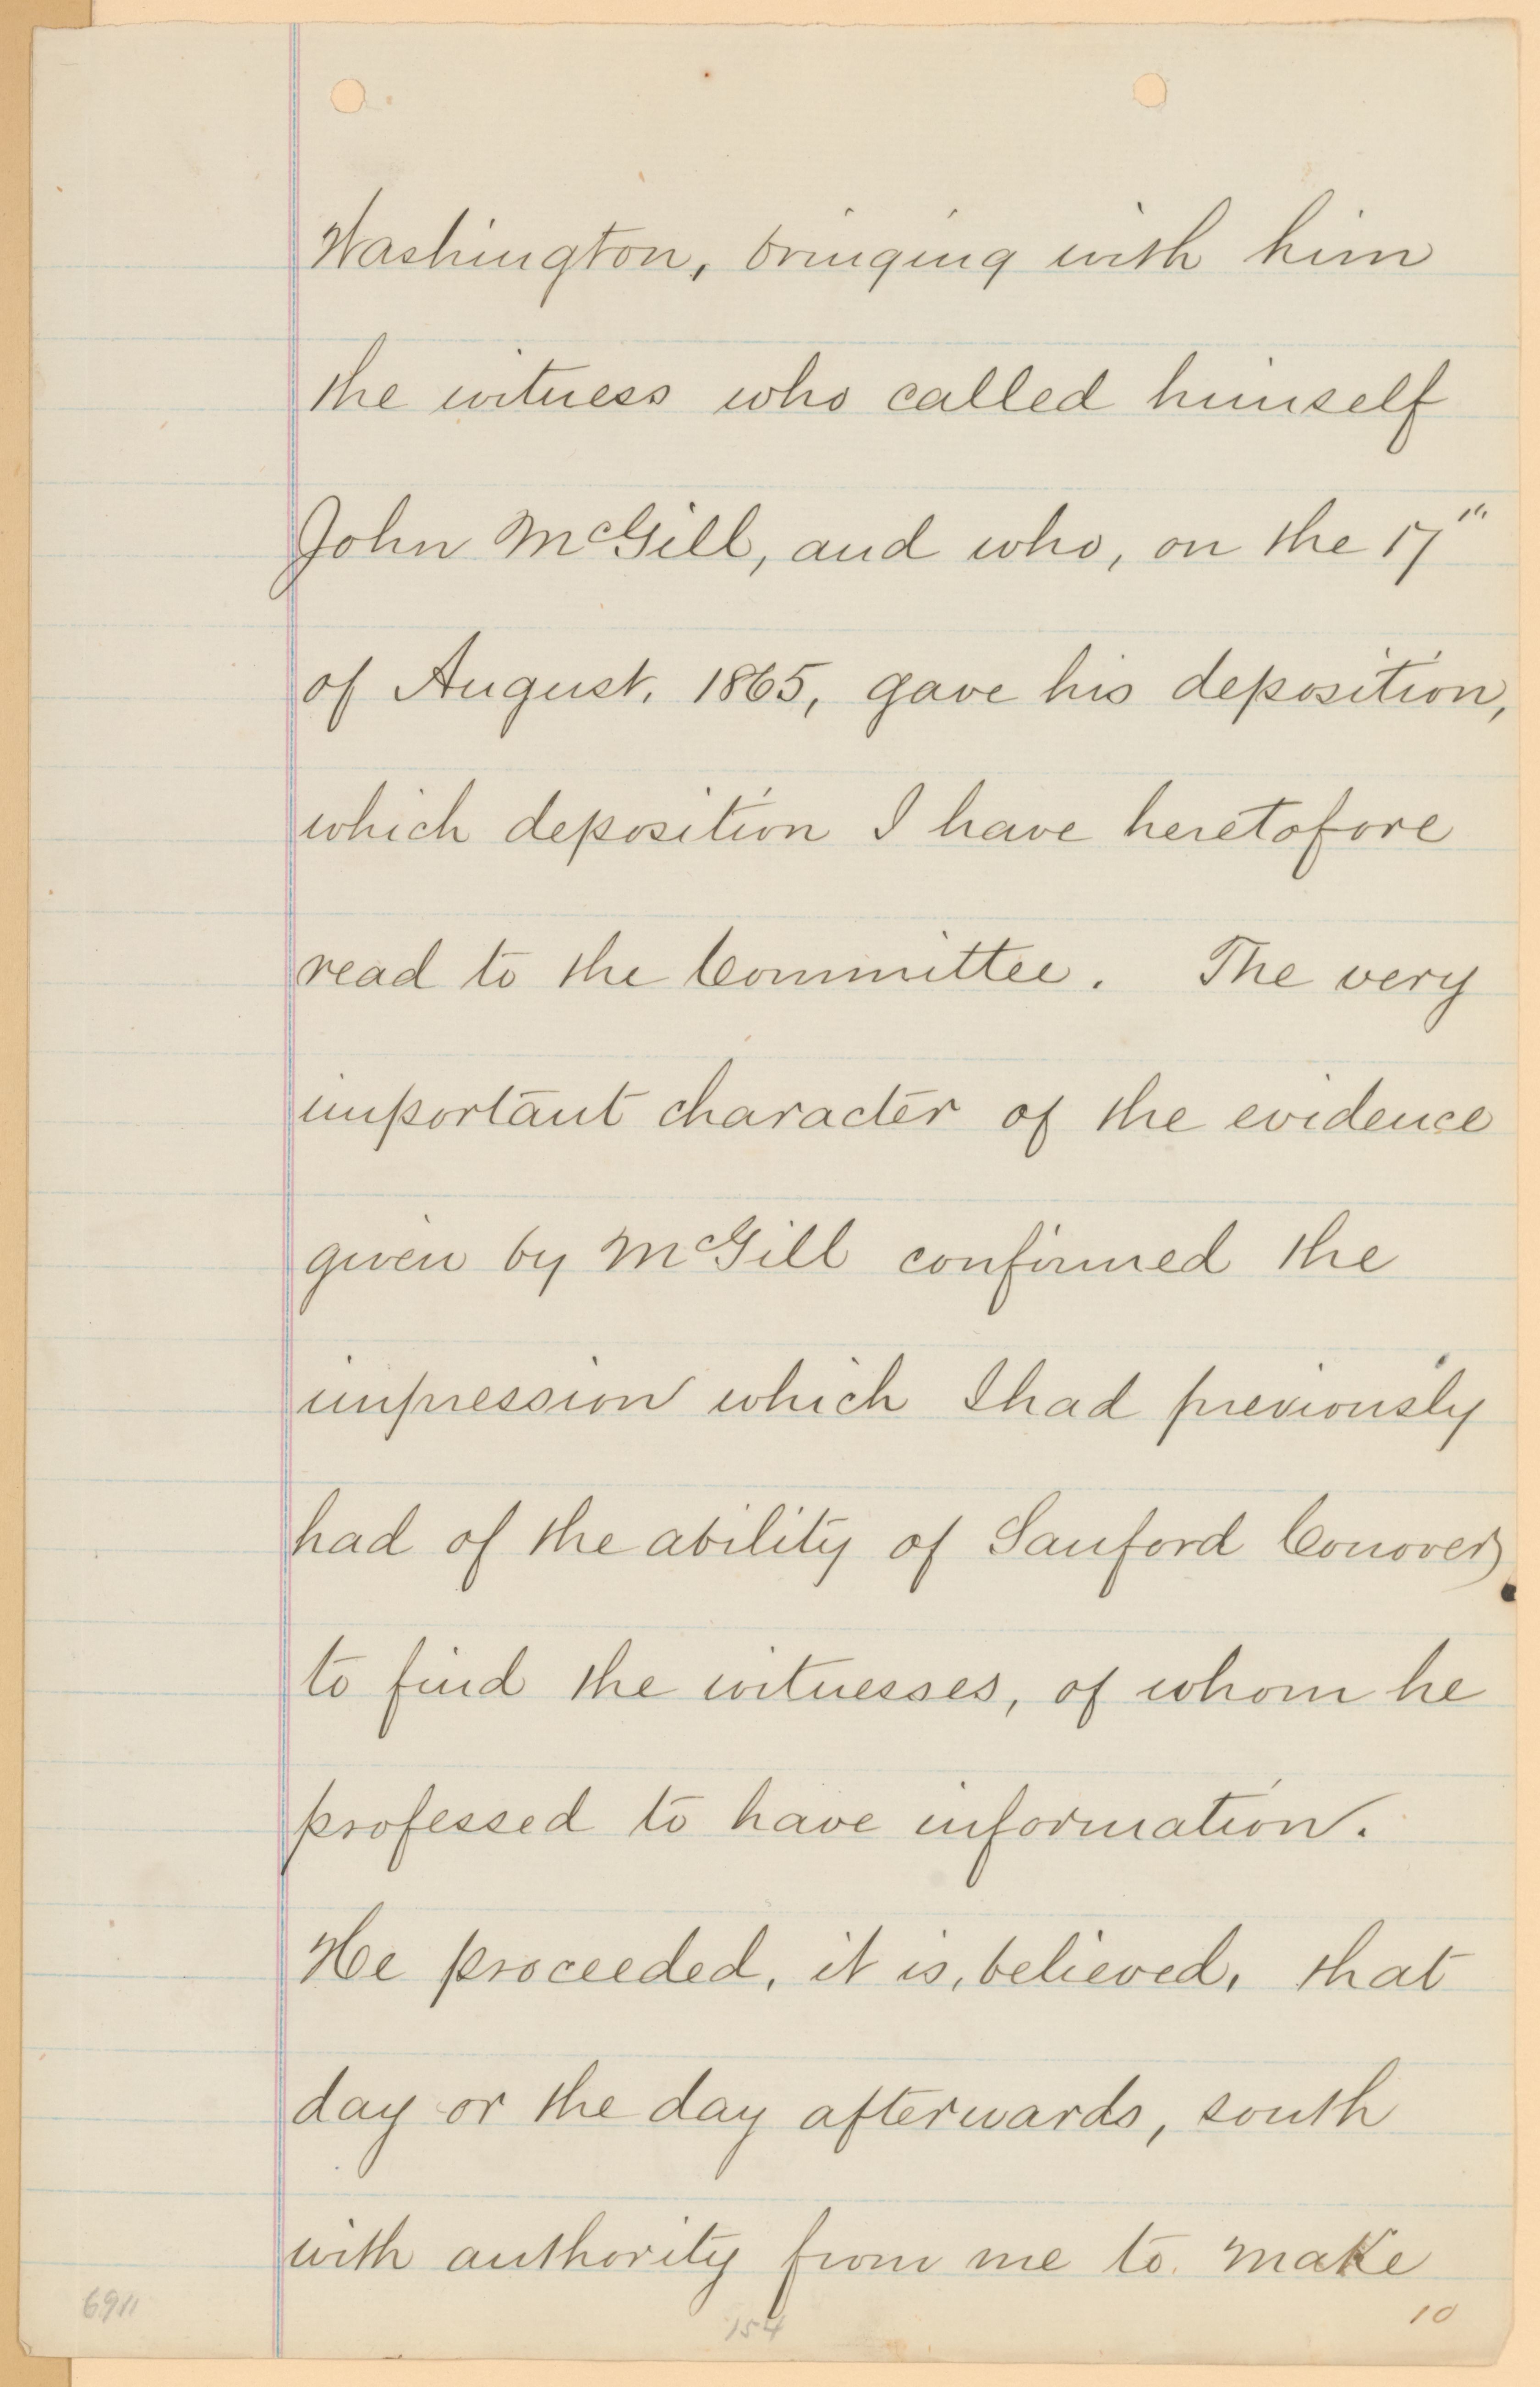 Washington, bringing with him
the witness who called himself
John McGill, and who, on the 17"
of August. 1865, gave his deposition,
which deposition I have heretofore
read to the Committee. The very
important character of the evidence
given by McGill confirmed the
impression which I had previously
had of the ability of Sanford Conover,
to find the witnesses, of whom he
professed to have information.
He proceeded, it is, believed, that
day or the day afterwards, south
with authority from me to make
6911 154 10